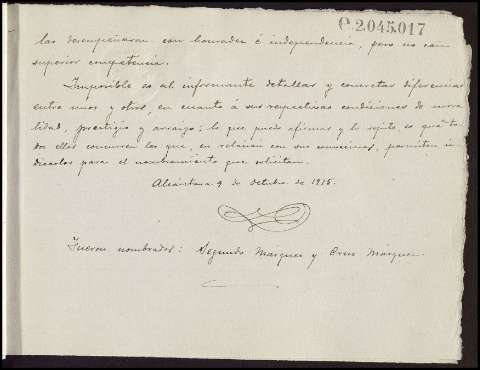 C 2.045.017
las desempeñaran con honradez é independencia, pero no con
superior competencia.
Imposible es al informante detallar y concretar diferencias
entre unos y otros, en cuanto á sus respectivas condiciones de mora
lidad, prestigio y arraigo; lo que puede afirmar y lo repite, es que to
dos ellos concurren los que, en relación con sus convecinos, permiten in
dicarlos para el nombramiento que solicitan.
Alcántara 9 de Octubre de 1915.
Fueron nombrados: Segundo Márquez y Cruz Márquez.